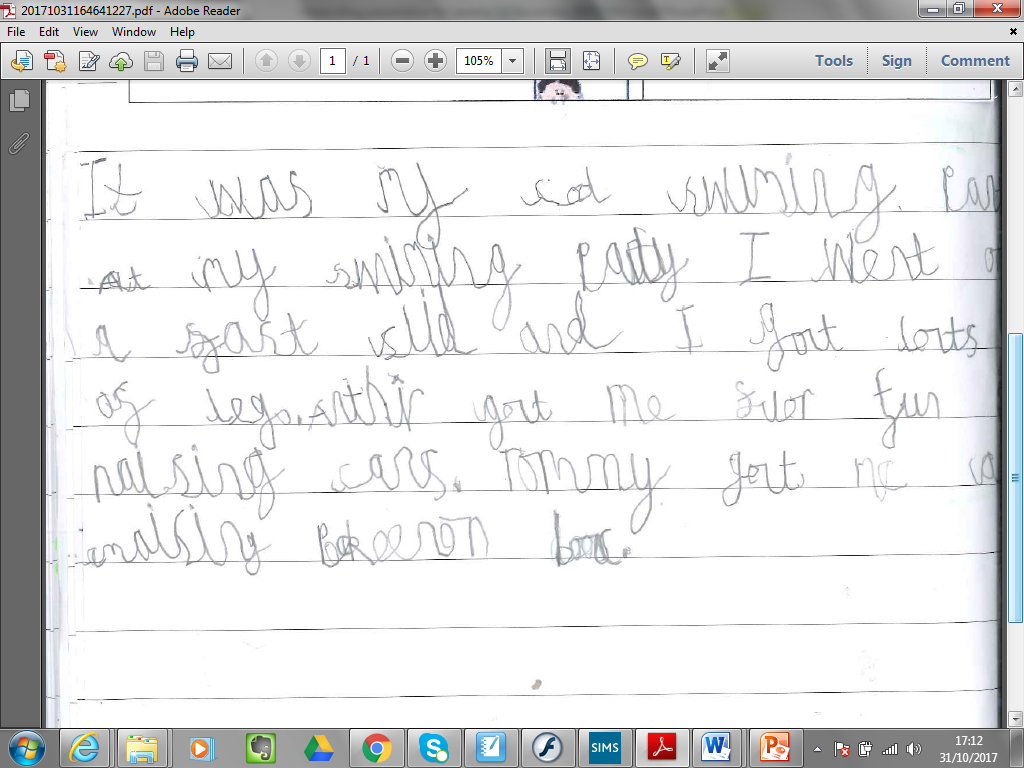 20171031164641227.pdf - Adobe Reader
File Edit View Window Help
1 / 1 105% Tools Sign Comment
It was my swiming
At my swiming party I went
a gast slid and I gort lorts
of lego. Arthir gort me fun
naising cars. Tommy gort me
amaising boox.
SIMS
17:12
31/10/2017